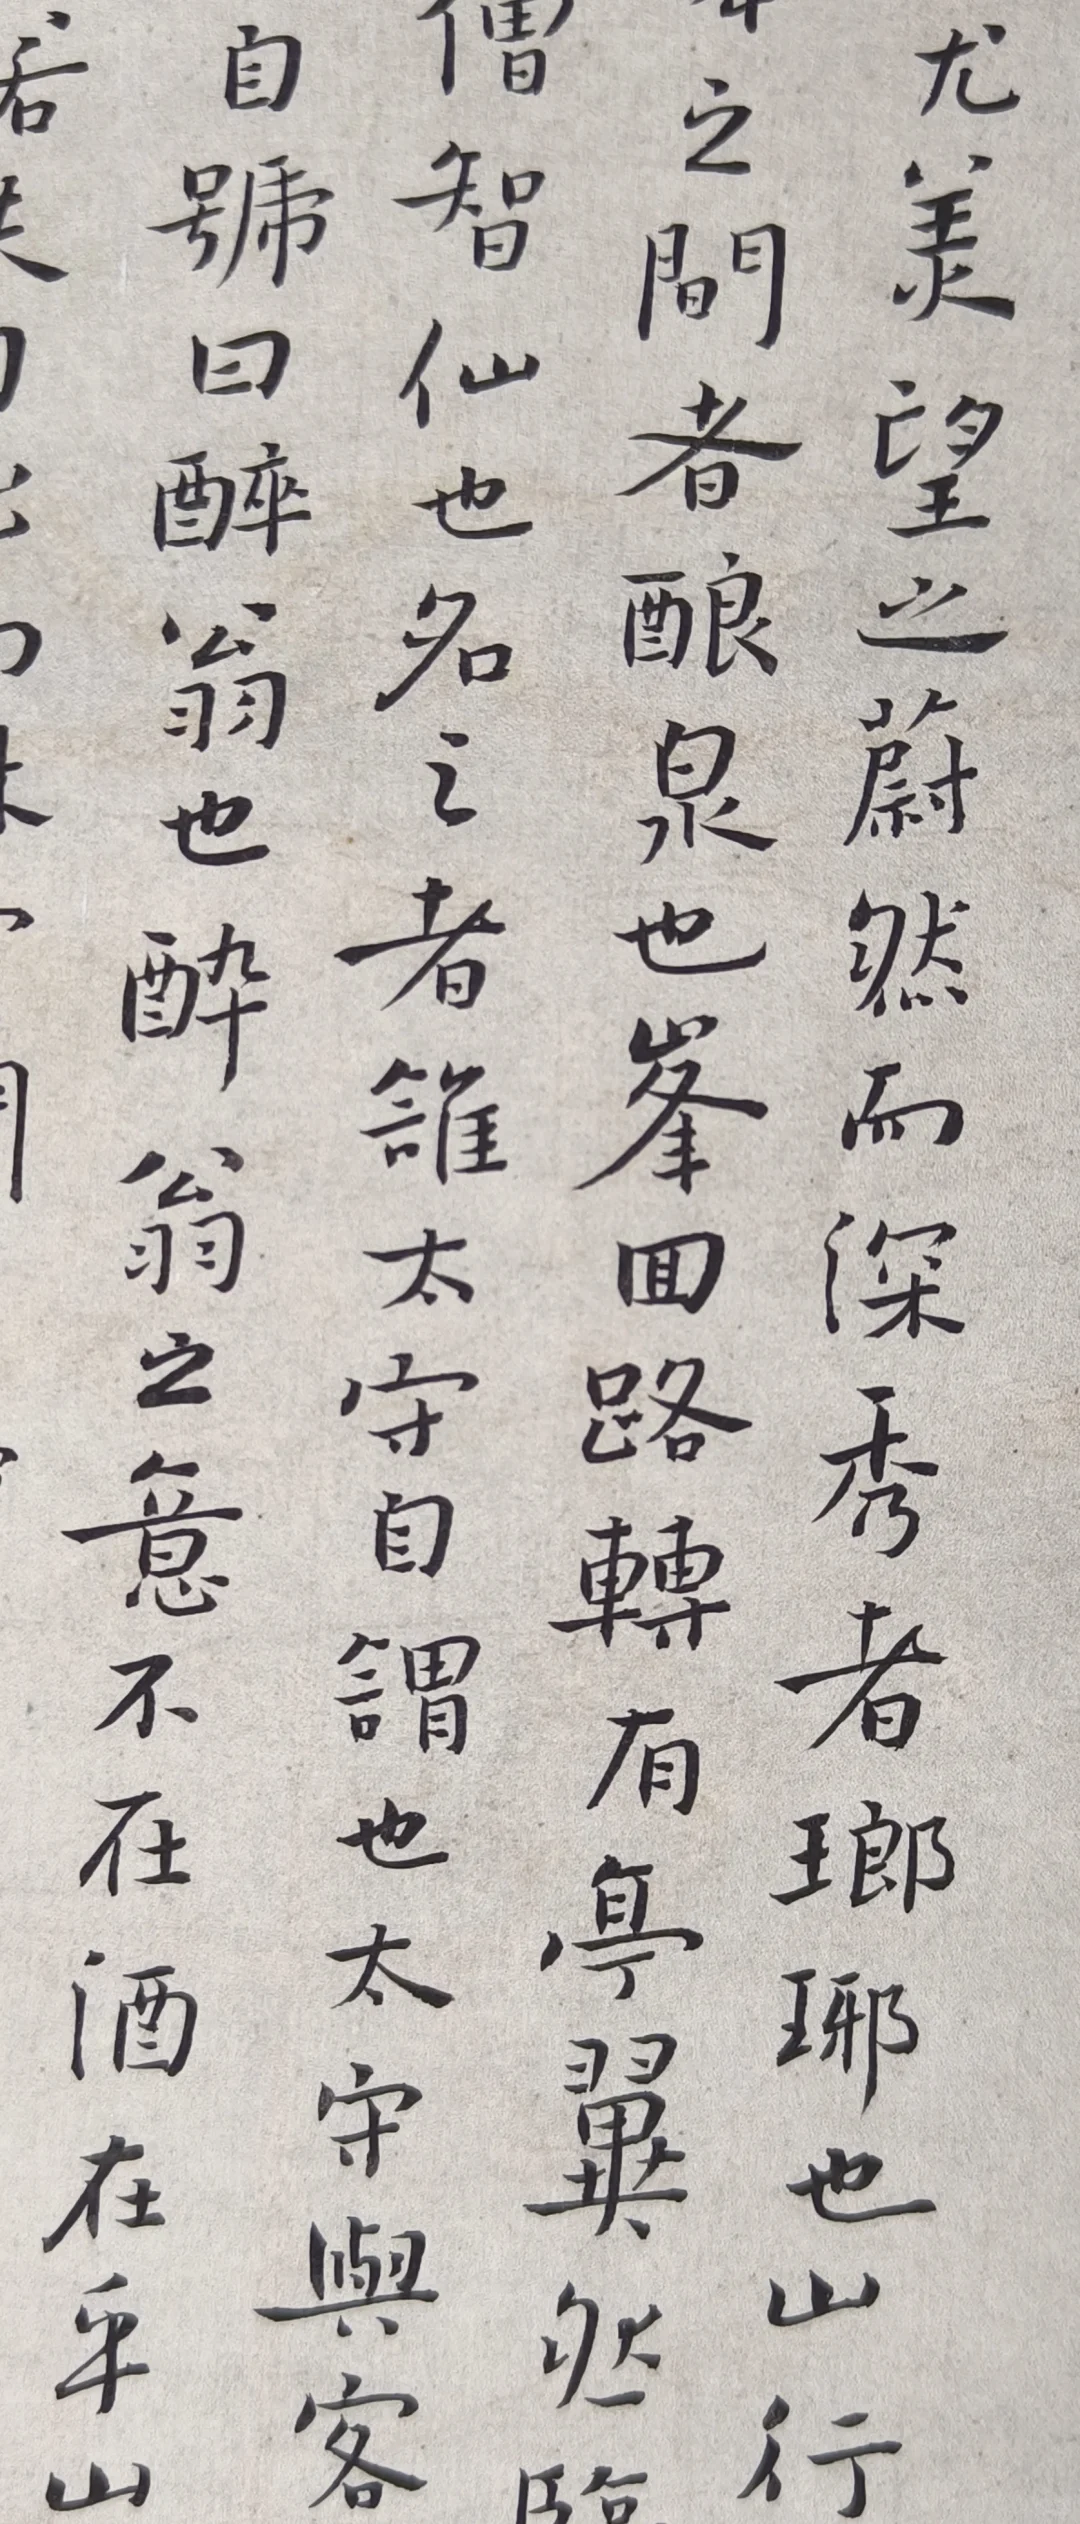 尤美望之蔚然而深秀者瑯琊也山行
之間者酿泉也峯囬路轉有亭翼然臨
僧智仙也名之者誰太守自謂也太守與客
自號曰醉翁也酔翁之意不在酒在乎山
若